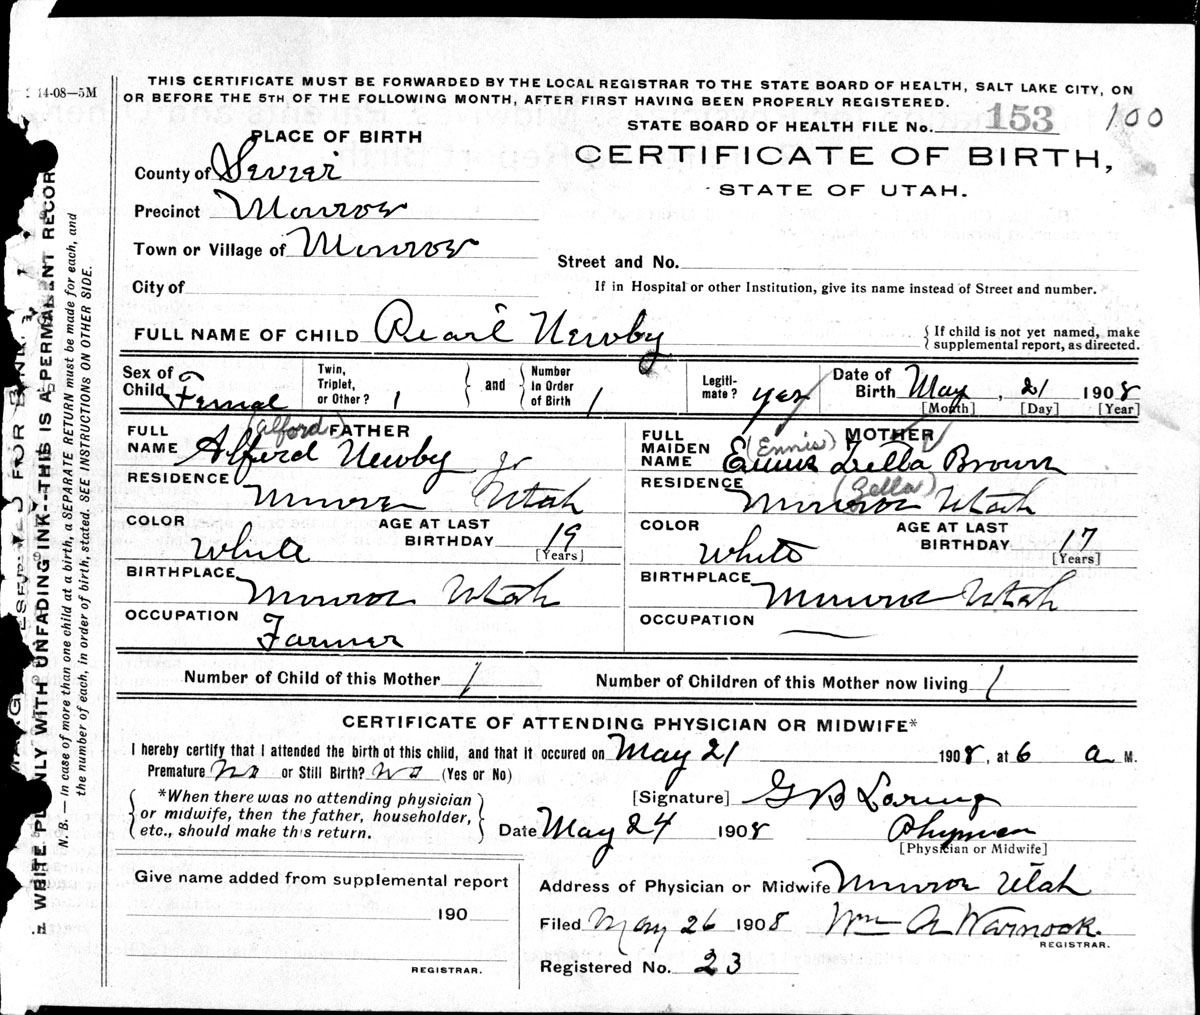 THIS CERTIFICATE MUST BE FORWARDED BY THE LOCAL REGISTRAR TO THE STATE BOARD OF HEALTH, SALT LAKE CITY, ON
OR BEFORE THE 5TH OF THE FOLLOWING MONTH, AFTER FIRST HAVING BEEN PROPERLY REGISTERED.
14-08—5M
STATE BOARD OF HEALTH FILE No. 153 100
PLACE OF BIRTH
CERTIFICATE OF BIRTH,
STATE OF UTAH.
County of Sevier
Precinct Monroe
Town or Village of Monroe
Street and No.
City of
If in Hospital or other Institution, give its name instead of Street and number.
FULL NAME OF CHILD Pearl Newby
{ If child is not yet named, make
supplemental report, as directed.
Sex of Child Femal
Twin, Triplet, or Other? 1
and
Number in Order of Birth 1
Legiti-mate? yes
Date of Birth May, 21 1908
[Month] [Day] [Year]
FATHER
FULL NAME (alford) Alferd Newby Jr
RESIDENCE Monroe Utah
COLOR White
AGE AT LAST BIRTHDAY 19 [Years]
BIRTHPLACE Monroe Utah
OCCUPATION Farmer
MOTHER
FULL MAIDEN NAME (Ennis) Zella Brown
(Zella)
RESIDENCE Monroe Utah
COLOR White
AGE AT LAST BIRTHDAY 17 [Years]
BIRTHPLACE Monroe Utah
OCCUPATION
Number of Child of this Mother 1
Number of Children of this Mother now living 1
CERTIFICATE OF ATTENDING PHYSICIAN OR MIDWIFE*
I hereby certify that I attended the birth of this child, and that it occured on May 21 1908, at 6 a M.
Premature No or Still Birth? No (Yes or No)
{ *When there was no attending physician
or midwife, then the father, householder,
etc., should make this return. }
[Signature] G B Loring
Date May 24 1908
[Physician or Midwife]
Give name added from supplemental report
190
REGISTRAR.
Address of Physician or Midwife Monroe Utah
Filed May 26 1908 Wm A Warnock.
REGISTRAR.
Registered No. 23
WRITE PLAINLY WITH UNFADING INK—THIS IS A PERMANENT RECORD
N. B.—In case of more than one child at a birth, a SEPARATE RETURN must be made for each, and
the number of each, in order of birth, stated. SEE INSTRUCTIONS ON OTHER SIDE.